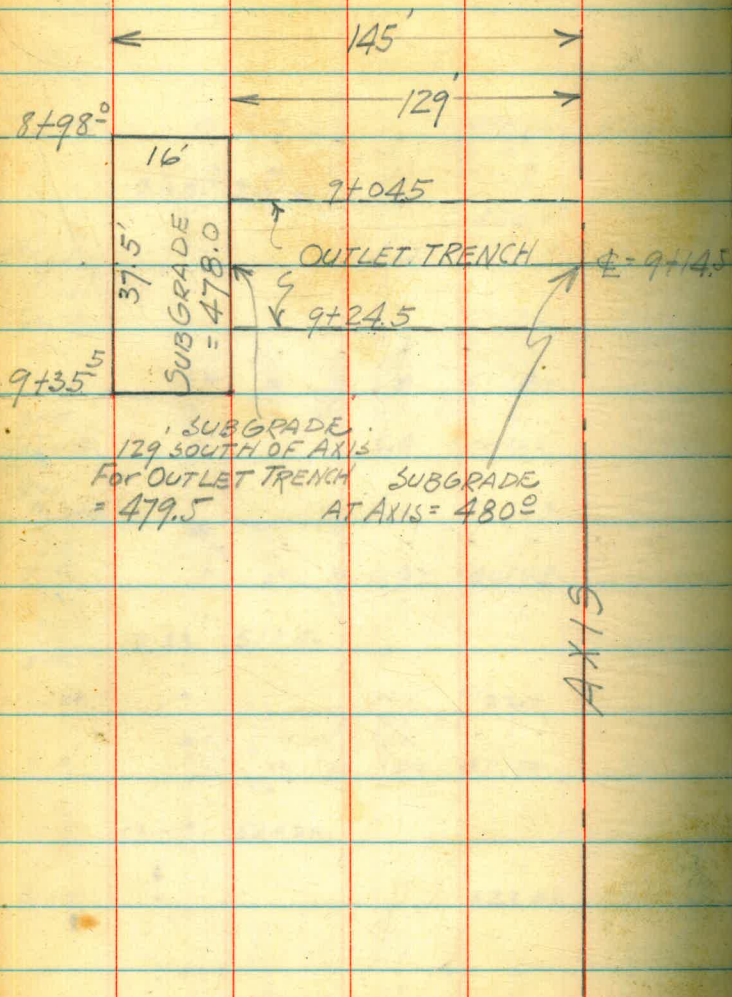 145'
129'
8+98.0
16'
9+04.5
37.5'
SUBGRADE
= 478.0
OUTLET TRENCH
℄ = 9+14.5
9+24.5
9+35.5
SUBGRADE
129' SOUTH OF AXIS
For OUTLET TRENCH
= 479.5
SUBGRADE
AT AXIS = 480.0
AXIS